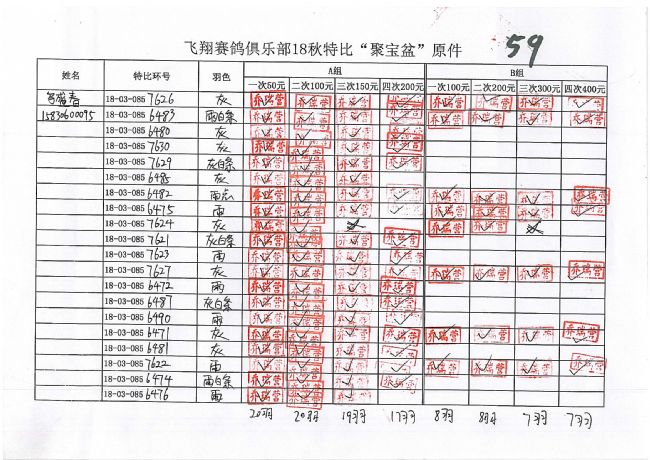 飞翔赛鸽俱乐部18秋特比“聚宝盆”原件 59
姓名 特比环号 羽色 A组 B组
一次50元 二次100元 三次150元 四次200元 一次100元 二次200元 三次300元 四次400元
18-03-0857626 灰 乔瑞营 乔瑞营 乔瑞营 乔瑞营 乔瑞营 乔瑞营 乔瑞营 乔瑞营
15830600095 18-03-0856483 雨白条 乔瑞营 乔瑞营 乔瑞营 乔瑞营 乔瑞营 乔瑞营 乔瑞营 乔瑞营
18-03-0856480 灰 乔瑞营 乔瑞营 乔瑞营 乔瑞营
18-03-0857630 灰 乔瑞营 乔瑞营 乔瑞营 乔瑞营
18-03-0857629 灰白条 乔瑞营 乔瑞营 乔瑞营 乔瑞营
18-03-0856485 灰 乔瑞营 乔瑞营 乔瑞营
18-03-0856482 乔瑞营 乔瑞营 乔瑞营 乔瑞营 乔瑞营 乔瑞营 乔瑞营
18-03-0856475 雨 乔瑞营 乔瑞营 乔瑞营 乔瑞营 乔瑞营 乔瑞营 乔瑞营
18-03-0857624 灰 乔瑞营 乔瑞营 乔瑞营 乔瑞营
18-03-0857621 灰白条 乔瑞营 乔瑞营 乔瑞营 乔瑞营
18-03-0857623 雨 乔瑞营 乔瑞营 乔瑞营 乔瑞营
18-03-0857627 灰 乔瑞营 乔瑞营 乔瑞营 乔瑞营 乔瑞营 乔瑞营 乔瑞营 乔瑞营
18-03-0856472 雨 乔瑞营 乔瑞营 乔瑞营 乔瑞营
18-03-0856487 灰白条 乔瑞营 乔瑞营 乔瑞营 乔瑞营
18-03-0856490 雨 乔瑞营 乔瑞营 乔瑞营 乔瑞营
18-03-0856471 灰 乔瑞营 乔瑞营 乔瑞营 乔瑞营 乔瑞营 乔瑞营 乔瑞营 乔瑞营
18-03-0856481 灰 乔瑞营 乔瑞营 乔瑞营 乔瑞营
18-03-0857622 雨 乔瑞营 乔瑞营 乔瑞营 乔瑞营 乔瑞营 乔瑞营 乔瑞营 乔瑞营
18-03-0856474 雨白条 乔瑞营 乔瑞营 乔瑞营 乔瑞营
18-03-0856476 雨 乔瑞营 乔瑞营 乔瑞营
20羽 20羽 19羽 17羽 8羽 8羽 7羽 7羽